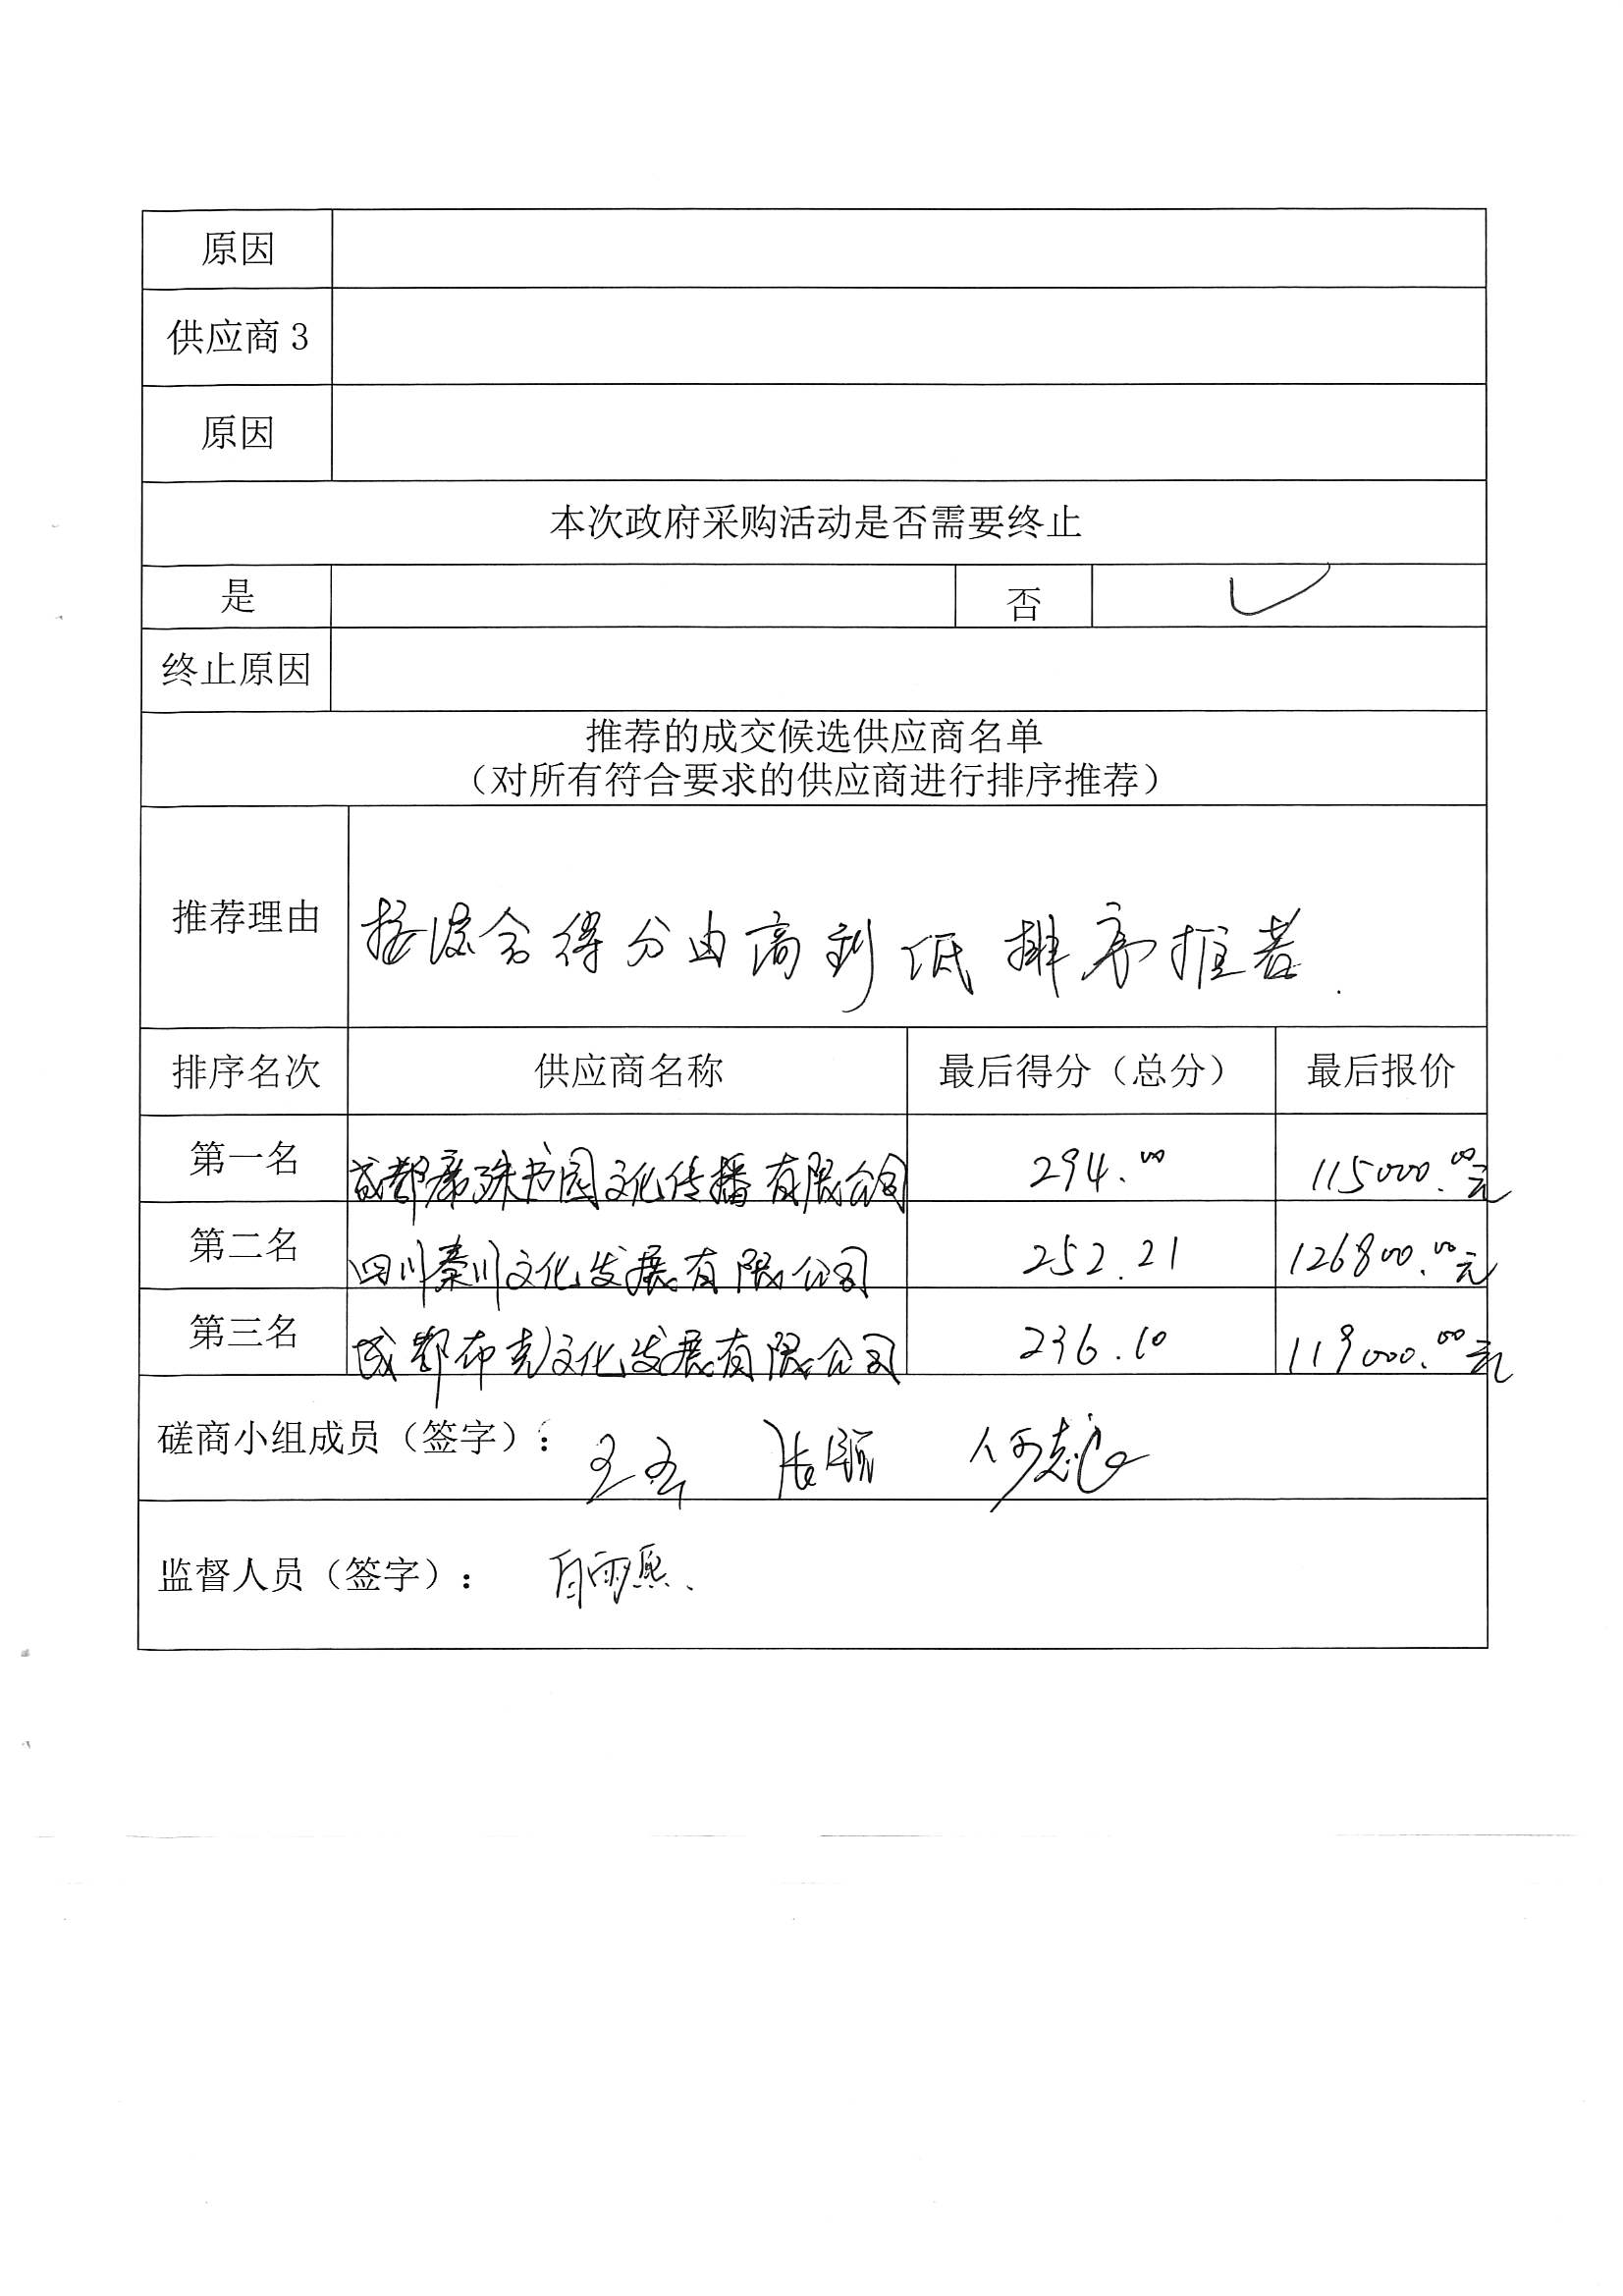 原因
供应商 3
原因
本次政府采购活动是否需要终止
是 否 ✓
终止原因
推荐的成交候选供应商名单
（对所有符合要求的供应商进行排序推荐）
推荐理由 按综合得分由高到低排序推荐.
排序名次 供应商名称 最后得分（总分） 最后报价
第一名 成都席殊书园文化传播有限公司 294.00 115000.00元
第二名 四川秦川文化发展有限公司 252.21 126800.00元
第三名 成都布克文化发展有限公司 236.10 119000.00元
磋商小组成员（签字）：
监督人员（签字）：